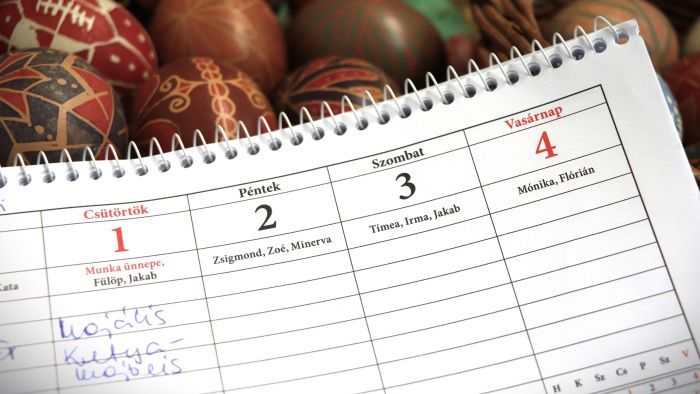 Csütörtök
1
Munka ünnepe,
Fülöp, Jakab
Péntek
2
Zsigmond, Zoé, Minerva
Szombat
3
Tímea, Irma, Jakab
Vasárnap
4
Mónika, Flórián
Majális
Kutya-
majális
H K Sz Cs P Sz V